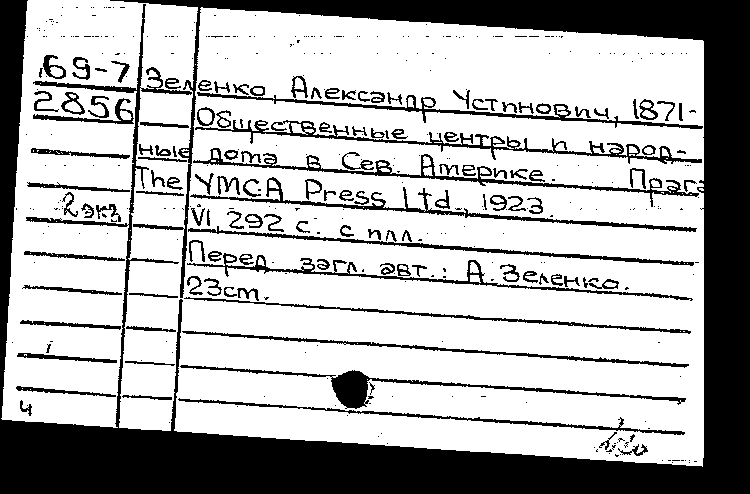 69-7
2856
2 экз
Зеленко, Александр Устинович, 1871-
Общественные центры и народ-
ные дома в Сев. Америке. Прага
The YMCA Press Ltd., 1923.
VI, 292 с. с илл.
Перед загл. авт.: А. Зеленко.
23cm.
ч